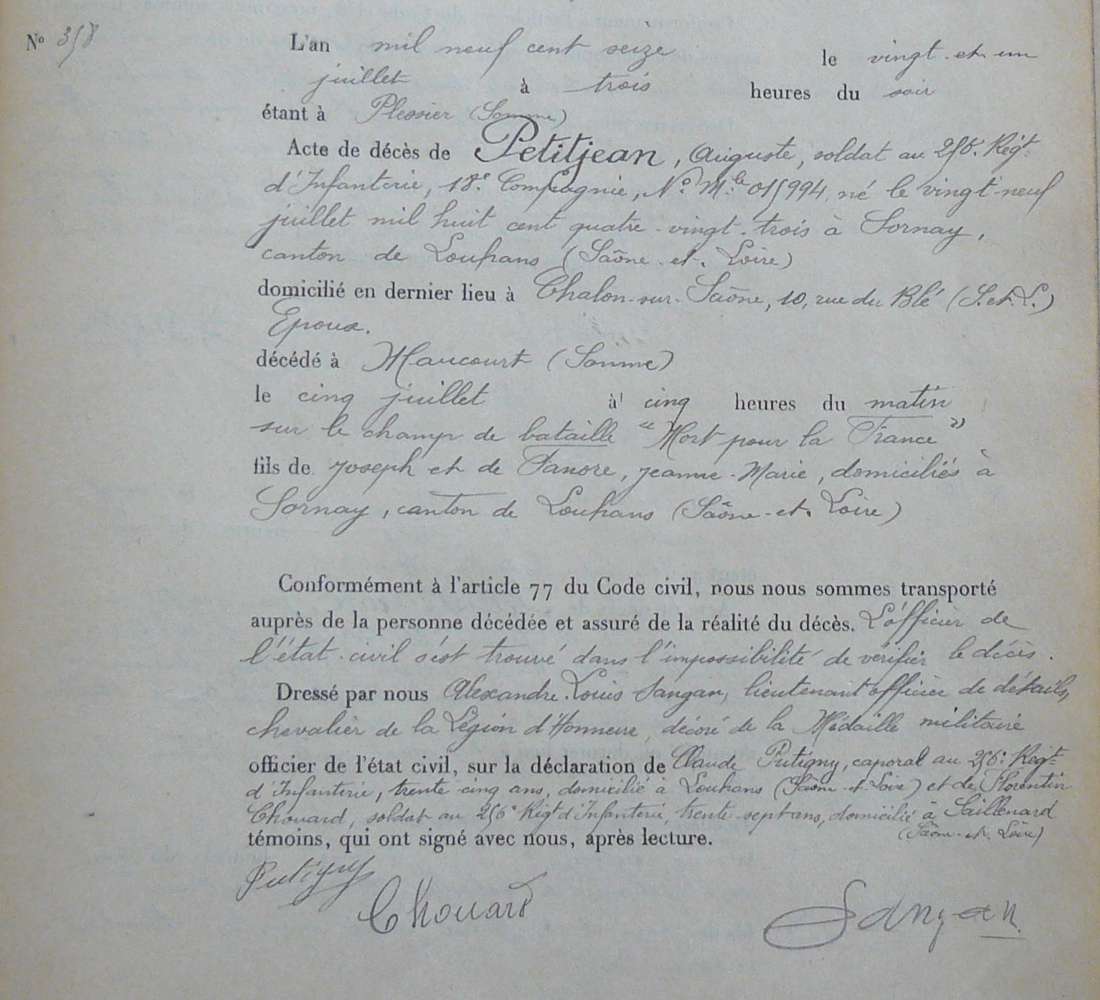 N° 358 L'an mil neuf cent seize le vingt-et-un
juillet à trois heures du soir
étant à Plessier (Somme)
Acte de décès de Petitjean, Auguste, soldat au 256e Régt
d'Infanterie, 18e Compagnie, No Mle 015994, né le vingt-neuf
juillet mil huit cent quatre-vingt-trois à Sornay,
canton de Louhans (Saône-et-Loire)
domicilié en dernier lieu à Chalon-sur-Saône, 10, rue du Blé (S.et.L.)
Epoux.
décédé à Maucourt (Somme)
le cinq juillet à cinq heures du matin
sur le champ de bataille "Mort pour la France"
fils de Joseph et de Tanore, Jeanne-Marie, domiciliés à
Sornay, canton de Louhans (Saône-et-Loire)
Conformément à l'article 77 du Code civil, nous nous sommes transporté
auprès de la personne décédée et assuré de la réalité du décès. L'officier de
l'état-civil s'est trouvé dans l'impossibilité de vérifier le décès.
Dressé par nous Alexandre Louis Sangan, lieutenant officier de détails,
chevalier de la Légion d'Honneur, décoré de la Médaille militaire
officier de l'état civil, sur la déclaration de Claude Putigny, caporal au 256e Régt
d'Infanterie, trente-cinq ans, domicilié à Louhans (Saône-et-Loire) et de Florentin
Chouard, soldat au 256e Régt d'Infanterie, trente-sept ans, domicilié à Saillenard
(Saône-et-Loire)
témoins, qui ont signé avec nous, après lecture.
Putigny
Chouard
Sangan